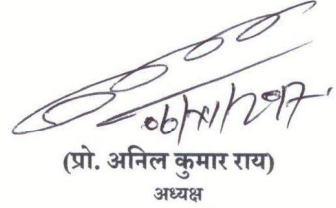 06/XI/2017.
(प्रो. अनिल कुमार राय)
अध्यक्ष